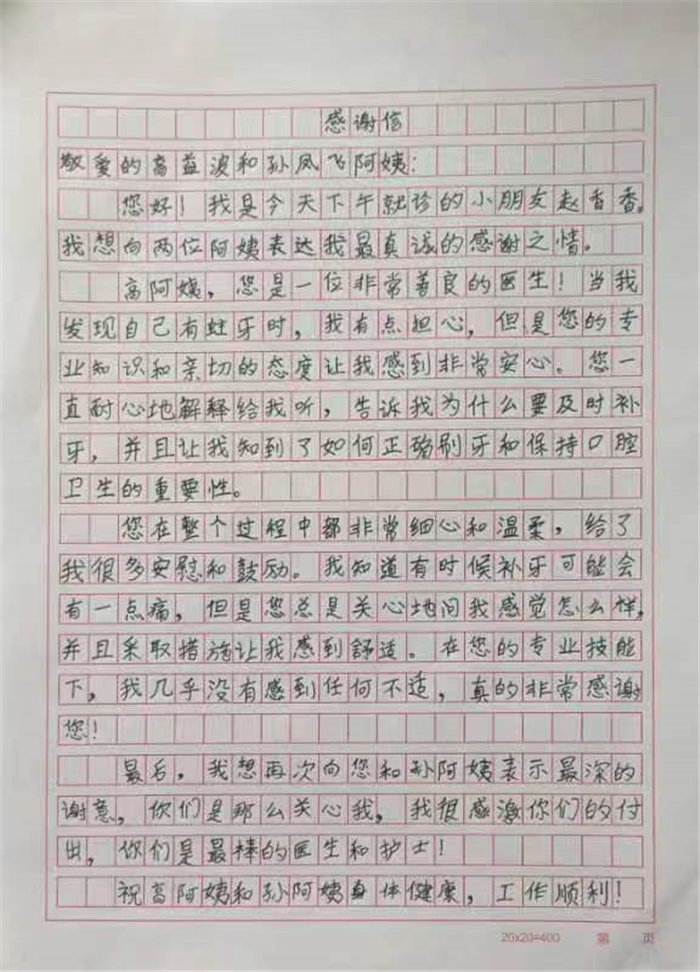 感谢信
敬爱的高益波和孙凤飞阿姨：
您好！我是今天下午就诊的小朋友赵香香。
我想向两位阿姨表达我最真诚的感谢之情。
高阿姨，您是一位非常善良的医生！当我
发现自己有蛀牙时，我有点担心，但是您的专
业知识和亲切的态度让我感到非常安心。您一
直耐心地解释给我听，告诉我为什么要及时补
牙，并且让我知到了如何正确刷牙和保持口腔
卫生的重要性。
您在整个过程中都非常细心和温柔，给了
我很多安慰和鼓励。我知道有时候补牙可能会
有一点痛，但是您总是关心地问我感觉怎么样，
并且采取措施让我感到舒适。在您的专业技能
下，我几乎没有感到任何不适，真的非常感谢
您！
最后，我想再次向您和孙阿姨表示最深的
谢意，你们是那么关心我，我很感激你们的付
出，你们是最棒的医生和护士！
祝高阿姨和孙阿姨身体健康，工作顺利！
20x20=400 第 页